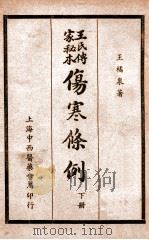 王橘泉著
王氏傳家秘本
傷寒條例
下冊
上海中西醫藥書局印行